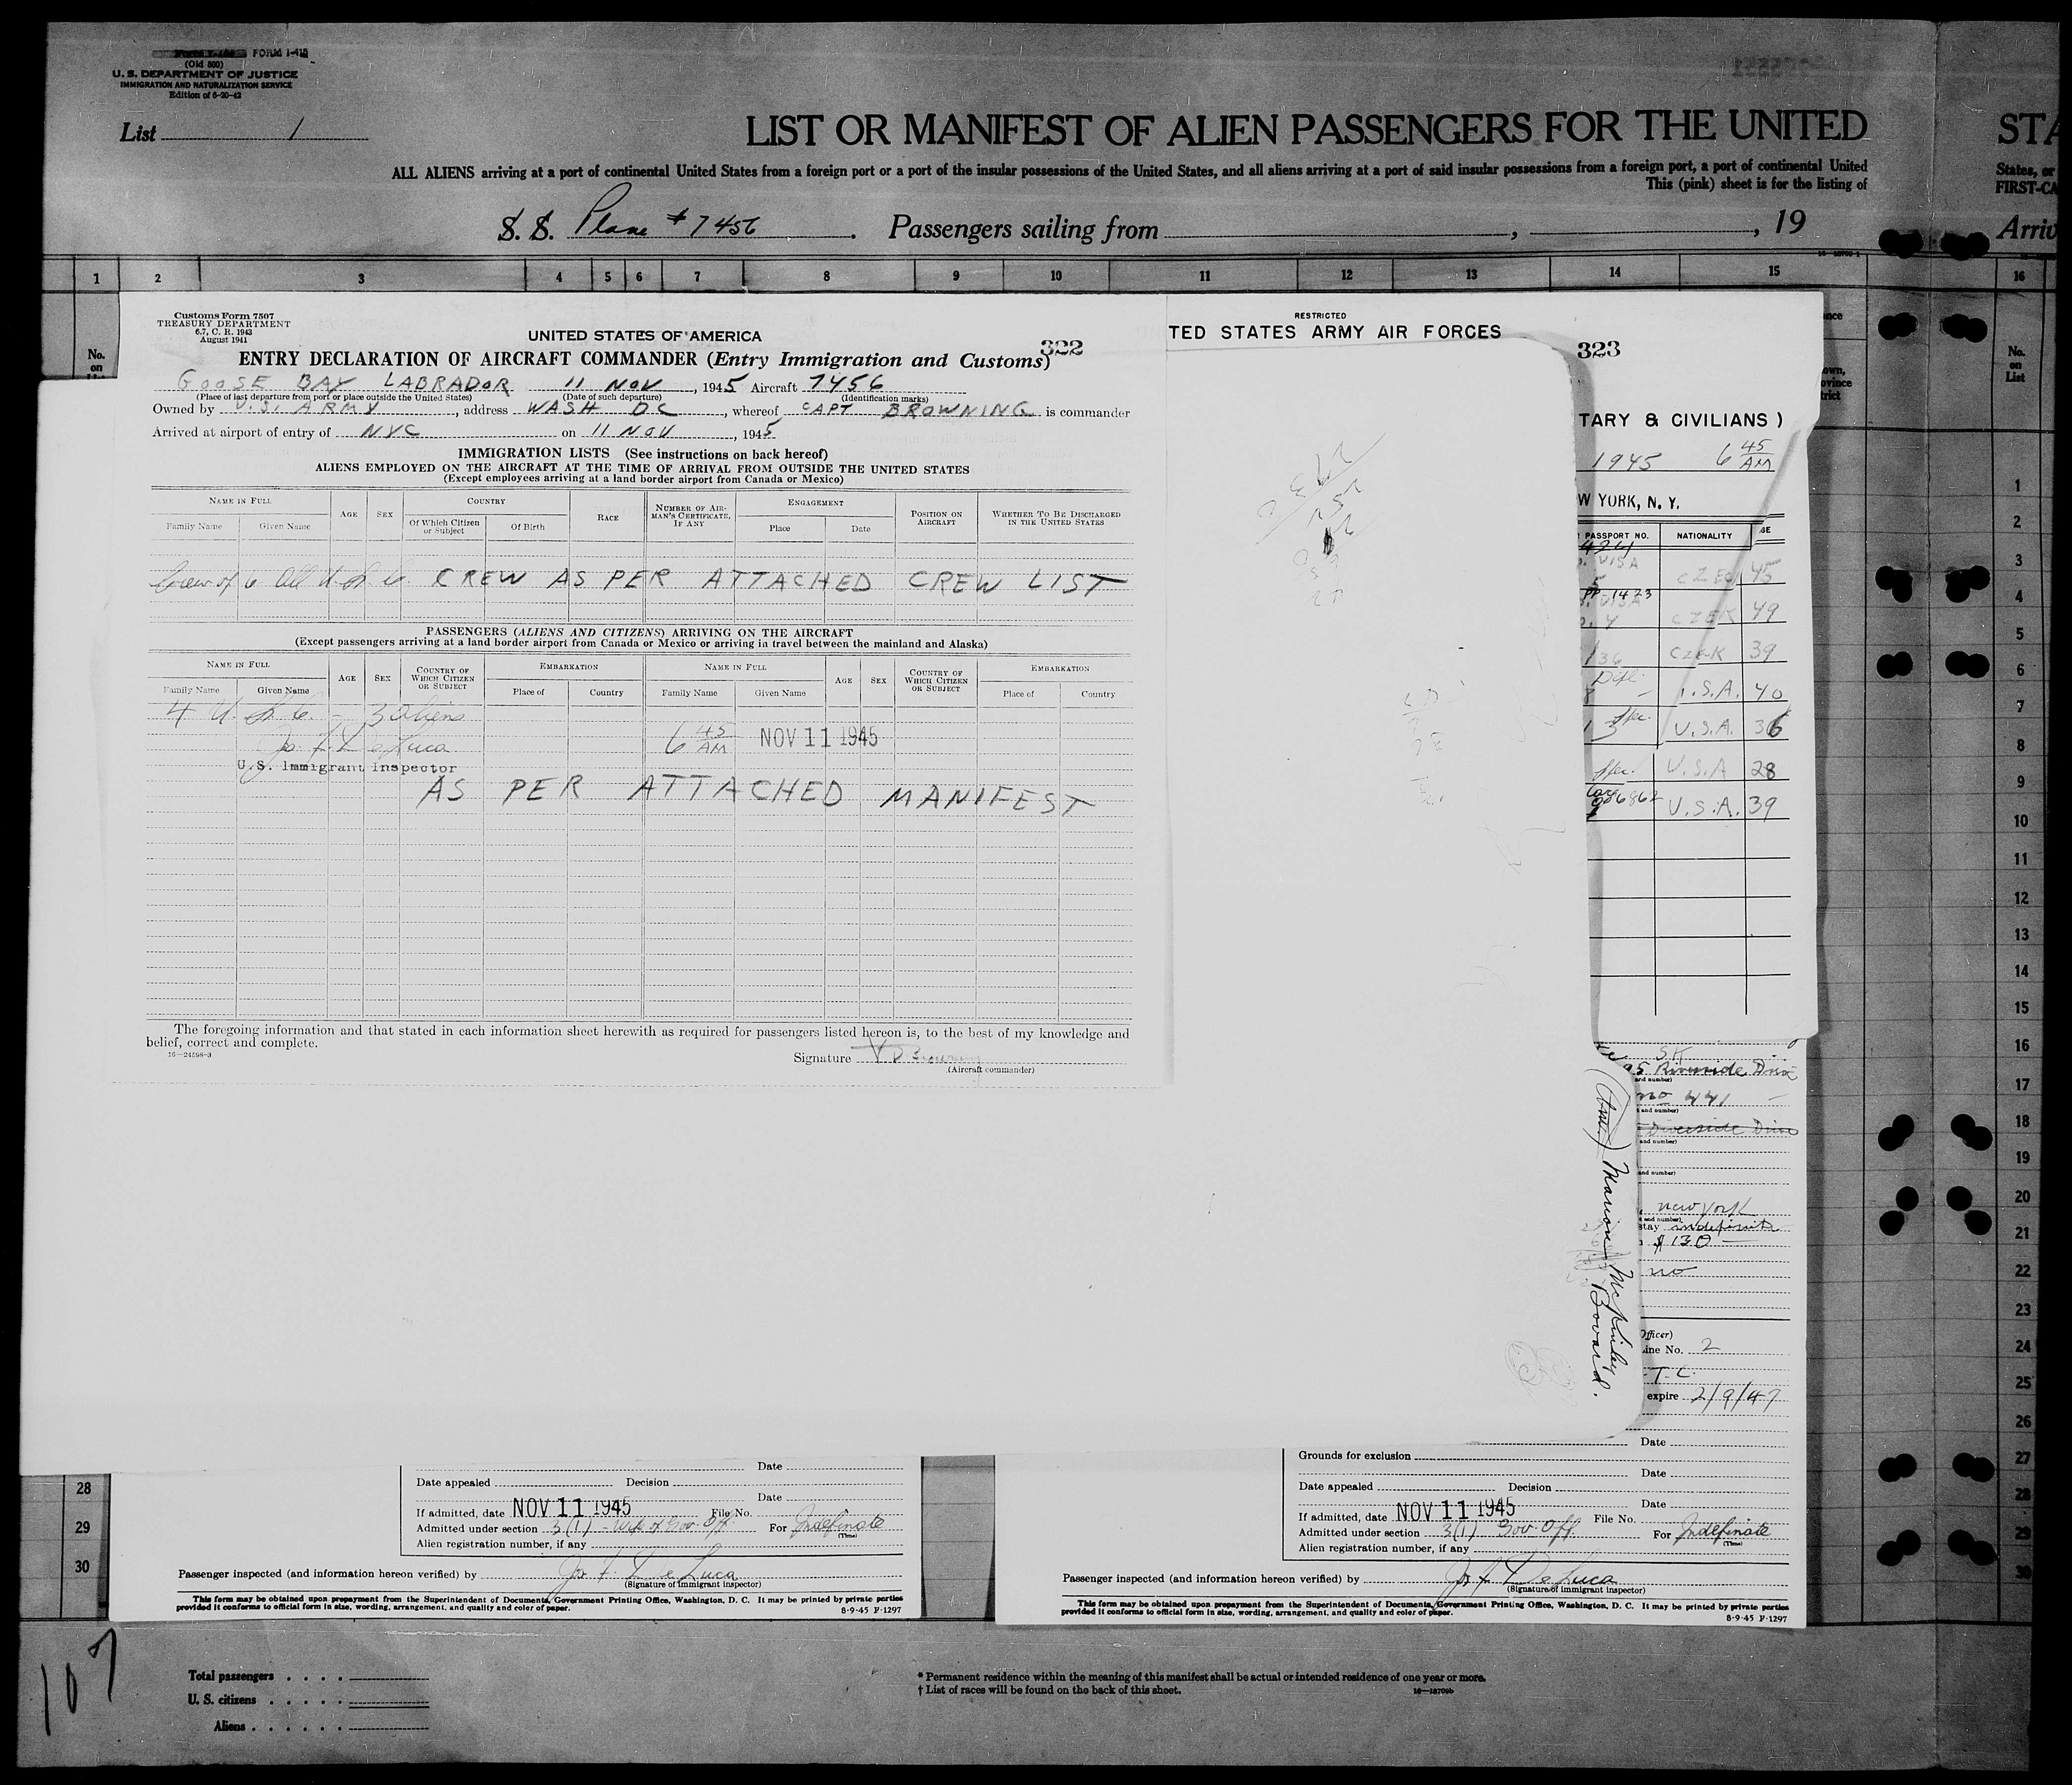 FORM I-415
(Old 500)
U. S. DEPARTMENT OF JUSTICE
IMMIGRATION AND NATURALIZATION SERVICE
Edition of 6-20-42
List 1
LIST OR MANIFEST OF ALIEN PASSENGERS FOR THE UNITED
STA
ALL ALIENS arriving at a port of continental United States from a foreign port or a port of the insular possessions of the United States, and all aliens arriving at a port of said insular possessions from a foreign port, a port of continental United
States, or
This (pink) sheet is for the listing of
FIRST-CA
S. S. Plane #7456. Passengers sailing from , , 19
Arriv
1 2 3 4 5 6 7 8 9 10 11 12 13 14 15 16
Customs Form 7507
TREASURY DEPARTMENT
6.7, C. R. 1943
August 1941
UNITED STATES OF AMERICA
322
ENTRY DECLARATION OF AIRCRAFT COMMANDER (Entry Immigration and Customs)
GOOSE BAY LABRADOR 11 NOV, 1945 Aircraft 7456
(Place of last departure from port or place outside the United States) (Date of such departure) (Identification marks)
Owned by U.S. ARMY, address WASH DC, whereof CAPT BROWNING is commander
Arrived at airport of entry of NYC on 11 NOV, 1945
IMMIGRATION LISTS (See instructions on back hereof)
ALIENS EMPLOYED ON THE AIRCRAFT AT THE TIME OF ARRIVAL FROM OUTSIDE THE UNITED STATES
(Except employees arriving at a land border airport from Canada or Mexico)
NAME IN FULL AGE SEX COUNTRY RACE NUMBER OF AIRMAN'S CERTIFICATE, IF ANY ENGAGEMENT POSITION ON AIRCRAFT WHETHER TO BE DISCHARGED IN THE UNITED STATES
Family Name Given Name Of Which Citizen or Subject Of Birth Place Date
Crew of 6 All U.S.C. CREW AS PER ATTACHED CREW LIST
PASSENGERS (ALIENS AND CITIZENS) ARRIVING ON THE AIRCRAFT
(Except passengers arriving at a land border airport from Canada or Mexico or arriving in travel between the mainland and Alaska)
NAME IN FULL AGE SEX COUNTRY OF WHICH CITIZEN OR SUBJECT EMBARKATION NAME IN FULL AGE SEX COUNTRY OF WHICH CITIZEN OR SUBJECT EMBARKATION
Family Name Given Name Place of Country Family Name Given Name Place of Country
4 U.S.C. - 3 Aliens
Jos. F. De Luca 6 45 AM NOV 11 1945
U.S. Immigrant Inspector
AS PER ATTACHED MANIFEST
The foregoing information and that stated in each information sheet herewith as required for passengers listed hereon is, to the best of my knowledge and
belief, correct and complete.
16—24598-3
Signature
(Aircraft commander)
RESTRICTED
TED STATES ARMY AIR FORCES
323
TARY & CIVILIANS )
1945 6 45 AM
W YORK, N. Y.
PASSPORT NO. NATIONALITY GE
VISA CZEK 45
PP-1423
VISA CZEK 49
136 CZEK 39
Dipl. U.S.A. 40
U.S.A. 36
U.S.A 28
U.S.A. 39
Riverside Drive
and number)
no 441
and number)
Riverside Drive
and number)
and number)
New York
and number)
stay indefinite
$130
no
Officer)
Line No. 2
T.C.
expire 2/9/47
(Am.) Marion McKinley Bovard.
No. on List
1
2
3
4
5
6
7
8
9
10
11
12
13
14
15
16
17
18
19
20
21
22
23
24
25
26
27
28
29
30
Date
Date appealed Decision
Date
If admitted, date NOV 11 1945 File No.
Admitted under section 3(1) - Wife of Gov. Off. For Indefinate
(Time)
Alien registration number, if any
Passenger inspected (and information hereon verified) by Jos. F. De Luca
(Signature of immigrant inspector)
This form may be obtained upon prepayment from the Superintendent of Documents, Government Printing Office, Washington, D. C. It may be printed by private parties
provided it conforms to official form in size, wording, arrangement, and quality and color of paper.
8-9-45 F-1297
Date
Grounds for exclusion
Date
Date appealed Decision
Date
If admitted, date NOV 11 1945 File No.
Admitted under section 3(1) Gov. Off. For Indefinate
(Time)
Alien registration number, if any
Passenger inspected (and information hereon verified) by Jos. F. De Luca
(Signature of immigrant inspector)
This form may be obtained upon prepayment from the Superintendent of Documents, Government Printing Office, Washington, D. C. It may be printed by private parties
provided it conforms to official form in size, wording, arrangement, and quality and color of paper.
8-9-45 F-1297
28
29
30
107
Total passengers
U. S. citizens
Aliens
* Permanent residence within the meaning of this manifest shall be actual or intended residence of one year or more.
† List of races will be found on the back of this sheet.